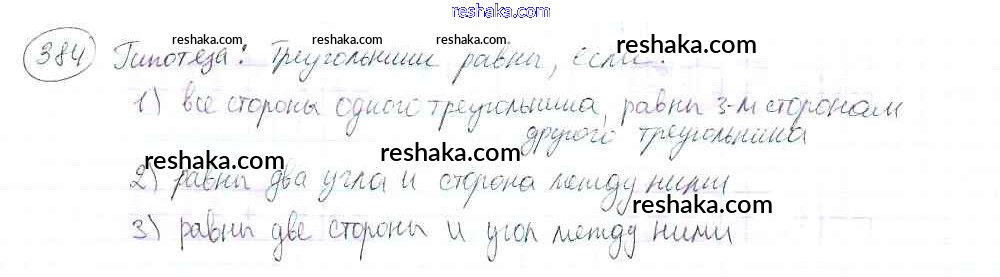 reshaka.com
reshaka.com reshaka.com reshaka.com
384 Гипотеза: Треугольники равны, если:
1) все стороны одного треугольника, равны 3-м сторонам
другого треугольника
reshaka.com reshaka.com
2) равны два угла и сторона между ними
reshaka.com
3) равны две стороны и угол между ними
reshaka.com